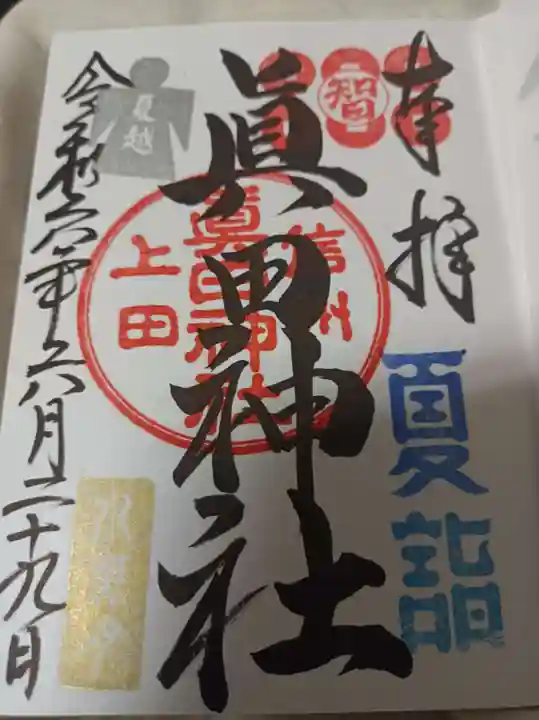 奉拝
智
夏詣
眞田神社
信州
眞田神社
上田
夏越
令和六年六月二十九日